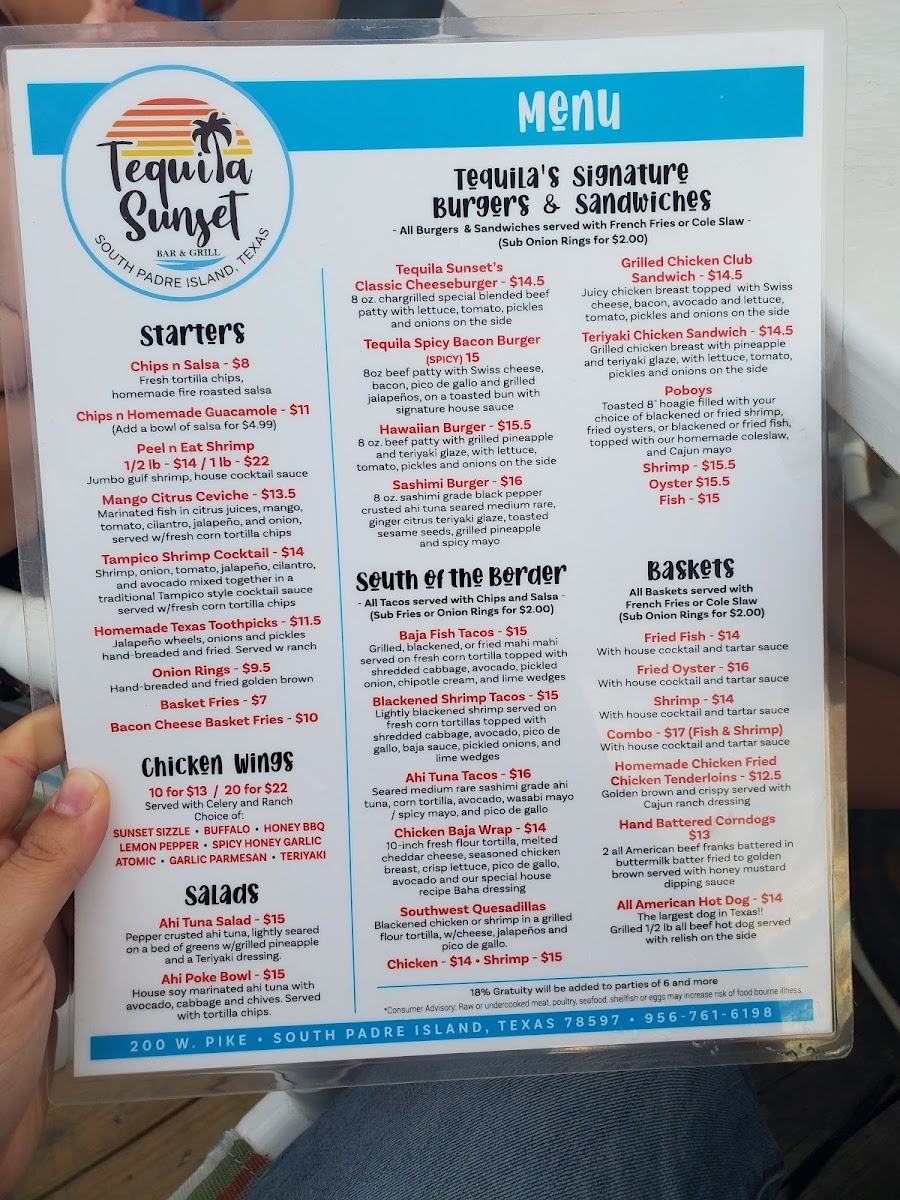 Tequila
Sunset
BAR & GRILL
SOUTH PADRE ISLAND, TEXAS
Menu
Starters
Chips n Salsa - $8
Fresh tortilla chips,
homemade fire roasted salsa
Chips n Homemade Guacamole - $11
(Add a bowl of salsa for $4.99)
Peel n Eat Shrimp
1/2 lb - $14 / 1 lb - $22
Jumbo gulf shrimp, house cocktail sauce
Mango Citrus Ceviche - $13.5
Marinated fish in citrus juices, mango,
tomato, cilantro, jalapeño, and onion,
served w/fresh corn tortilla chips
Tampico Shrimp Cocktail - $14
Shrimp, onion, tomato, jalapeño, cilantro,
and avocado mixed together in a
traditional Tampico style cocktail sauce
served w/fresh corn tortilla chips
Homemade Texas Toothpicks - $11.5
Jalapeño wheels, onions and pickles
hand-breaded and fried. Served w ranch
Onion Rings - $9.5
Hand-breaded and fried golden brown
Basket Fries - $7
Bacon Cheese Basket Fries - $10
Chicken Wings
10 for $13 / 20 for $22
Served with Celery and Ranch
Choice of:
SUNSET SIZZLE • BUFFALO • HONEY BBQ
LEMON PEPPER • SPICY HONEY GARLIC
ATOMIC • GARLIC PARMESAN • TERIYAKI
Salads
Ahi Tuna Salad - $15
Pepper crusted ahi tuna, lightly seared
on a bed of greens w/grilled pineapple
and a Teriyaki dressing.
Ahi Poke Bowl - $15
House soy marinated ahi tuna with
avocado, cabbage and chives. Served
with tortilla chips.
Tequila's Signature
Burgers & Sandwiches
- All Burgers & Sandwiches served with French Fries or Cole Slaw -
(Sub Onion Rings for $2.00)
Tequila Sunset's
Classic Cheeseburger - $14.5
8 oz. chargrilled special blended beef
patty with lettuce, tomato, pickles
and onions on the side
Tequila Spicy Bacon Burger
(SPICY) 15
8oz beef patty with Swiss cheese,
bacon, pico de gallo and grilled
jalapeños, on a toasted bun with
signature house sauce
Hawaiian Burger - $15.5
8 oz. beef patty with grilled pineapple
and teriyaki glaze, with lettuce,
tomato, pickles and onions on the side
Sashimi Burger - $16
8 oz. sashimi grade black pepper
crusted ahi tuna seared medium rare,
ginger citrus teriyaki glaze, toasted
sesame seeds, grilled pineapple
and spicy mayo
Grilled Chicken Club
Sandwich - $14.5
Juicy chicken breast topped with Swiss
cheese, bacon, avocado and lettuce,
tomato, pickles and onions on the side
Teriyaki Chicken Sandwich - $14.5
Grilled chicken breast with pineapple
and teriyaki glaze, with lettuce, tomato,
pickles and onions on the side
Poboys
Toasted 8" hoagie filled with your
choice of blackened or fried shrimp,
fried oysters, or blackened or fried fish,
topped with our homemade coleslaw,
and Cajun mayo
Shrimp - $15.5
Oyster $15.5
Fish - $15
South of the Border
- All Tacos served with Chips and Salsa -
(Sub Fries or Onion Rings for $2.00)
Baja Fish Tacos - $15
Grilled, blackened, or fried mahi mahi
served on fresh corn tortilla topped with
shredded cabbage, avocado, pickled
onion, chipotle cream, and lime wedges
Blackened Shrimp Tacos - $15
Lightly blackened shrimp served on
fresh corn tortillas topped with
shredded cabbage, avocado, pico de
gallo, baja sauce, pickled onions, and
lime wedges
Ahi Tuna Tacos - $16
Seared medium rare sashimi grade ahi
tuna, corn tortilla, avocado, wasabi mayo
/ spicy mayo, and pico de gallo
Chicken Baja Wrap - $14
10-inch fresh flour tortilla, melted
cheddar cheese, seasoned chicken
breast, crisp lettuce, pico de gallo,
avocado and our special house
recipe Baha dressing
Southwest Quesadillas
Blackened chicken or shrimp in a grilled
flour tortilla, w/cheese, jalapeños and
pico de gallo.
Chicken - $14 • Shrimp - $15
Baskets
All Baskets served with
French Fries or Cole Slaw
(Sub Onion Rings for $2.00)
Fried Fish - $14
With house cocktail and tartar sauce
Fried Oyster - $16
With house cocktail and tartar sauce
Shrimp - $14
With house cocktail and tartar sauce
Combo - $17 (Fish & Shrimp)
With house cocktail and tartar sauce
Homemade Chicken Fried
Chicken Tenderloins - $12.5
Golden brown and crispy served with
Cajun ranch dressing
Hand Battered Corndogs
$13
2 all American beef franks battered in
buttermilk batter fried to golden
brown served with honey mustard
dipping sauce
All American Hot Dog - $14
The largest dog in Texas!!
Grilled 1/2 lb all beef hot dog served
with relish on the side
18% Gratuity will be added to parties of 6 and more
*Consumer Advisory: Raw or undercooked meat, poultry, seafood, shellfish or eggs may increase risk of food bourne illness.
200 W. PIKE • SOUTH PADRE ISLAND, TEXAS 78597 • 956-761-6198